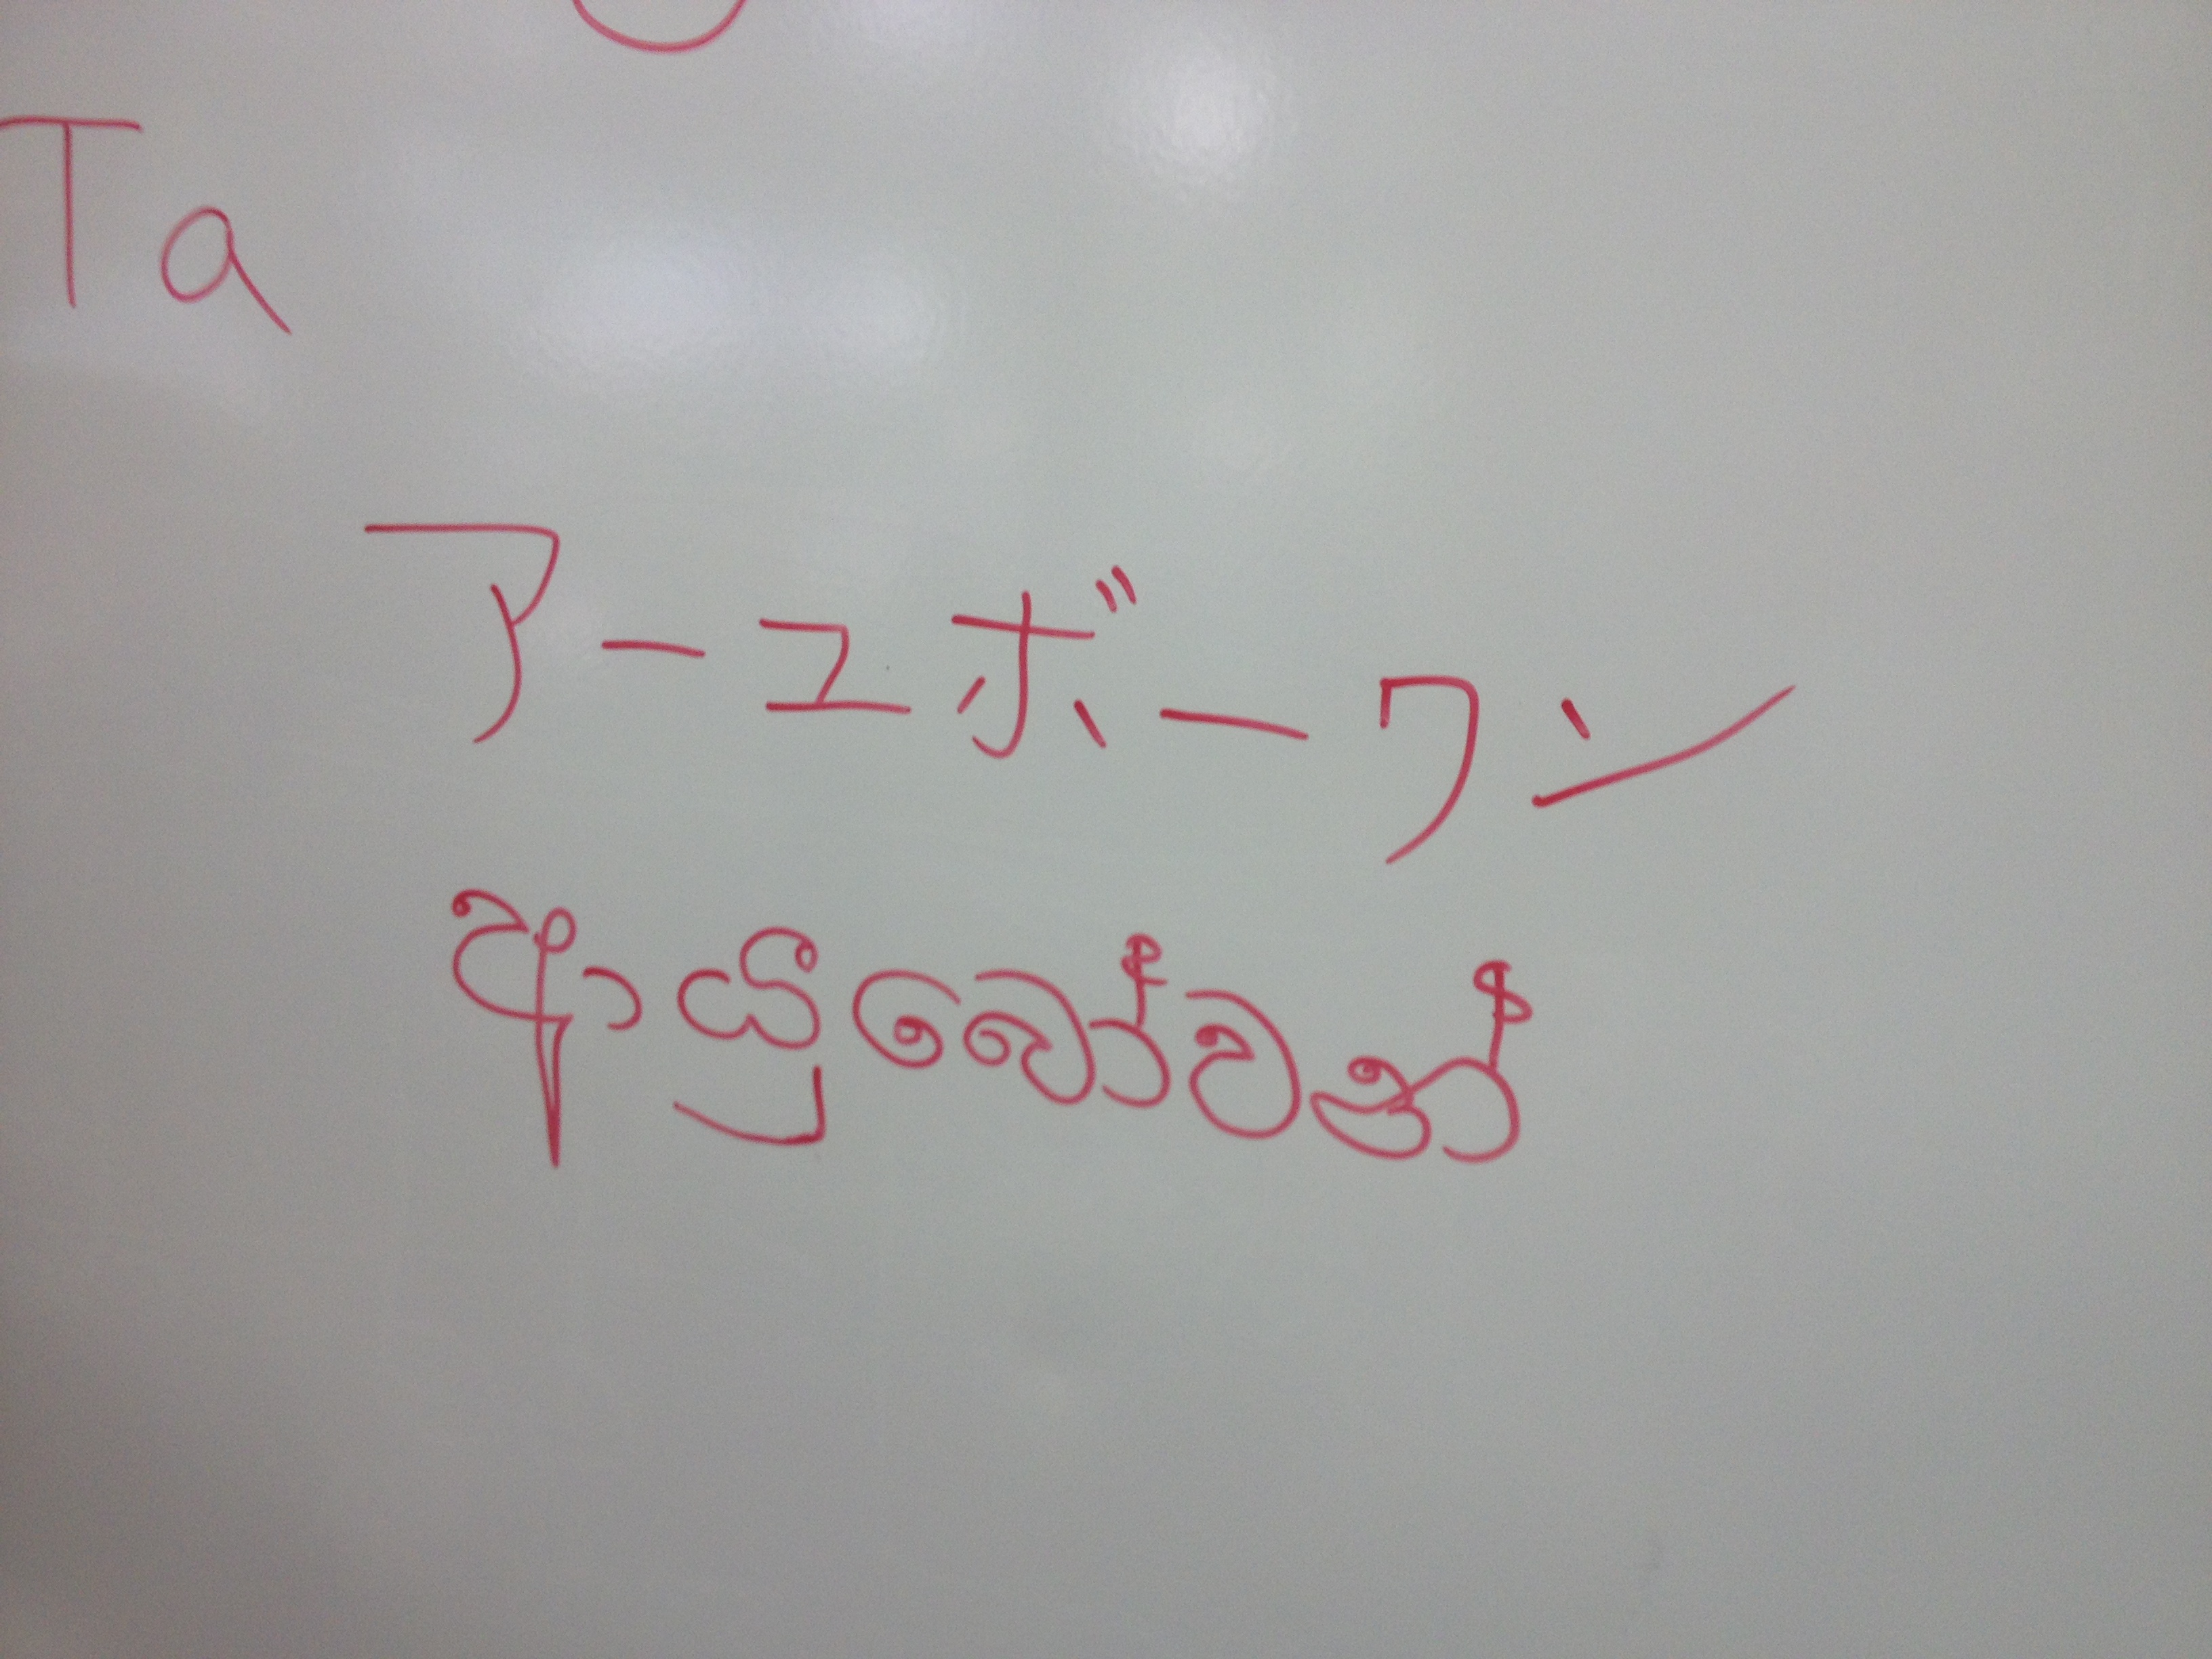 Ta
アーユボーワン
ආයුබෝවන්